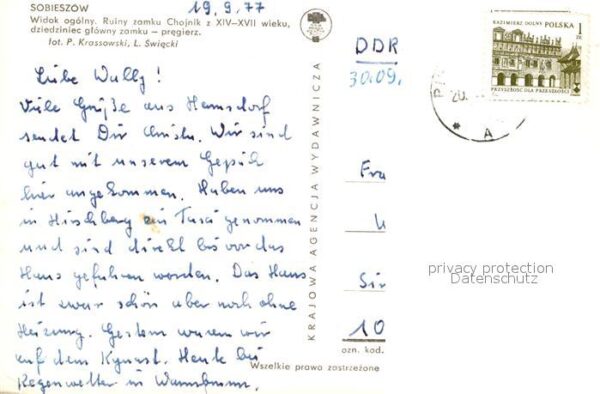 SOBIESZÓW
Widok ogólny. Ruiny zamku Chojnik z XIV–XVII wieku,
dziedziniec główny zamku — pręgierz.
fot. P. Krassowski, L. Święcki
19.9.77
Liebe Wally!
Viele Grüße aus Hermsdorf
sendet Dir Christa. Wir sind
gut mit unserem Gepäck
hier angekommen. Haben uns
in Hirschberg ein Taxi genommen
und sind direkt bis vor das
Haus gefahren worden. Das Haus
ist zwar schön aber noch ohne
Heizung. Gestern waren wir
auf dem Kynast. Heute bei
Regenwetter in Warmbrunn.
KRAJOWA AGENCJA WYDAWNICZA
DDR
30.09.
Fra
Sir
10
ozn. kod.
Wszelkie prawa zastrzeżone
KAZIMIERZ DOLNY POLSKA 1
ZŁ
PRZYSZŁOŚĆ DLA PRZESZŁOŚCI
20.
* A
privacy protection
Datenschutz